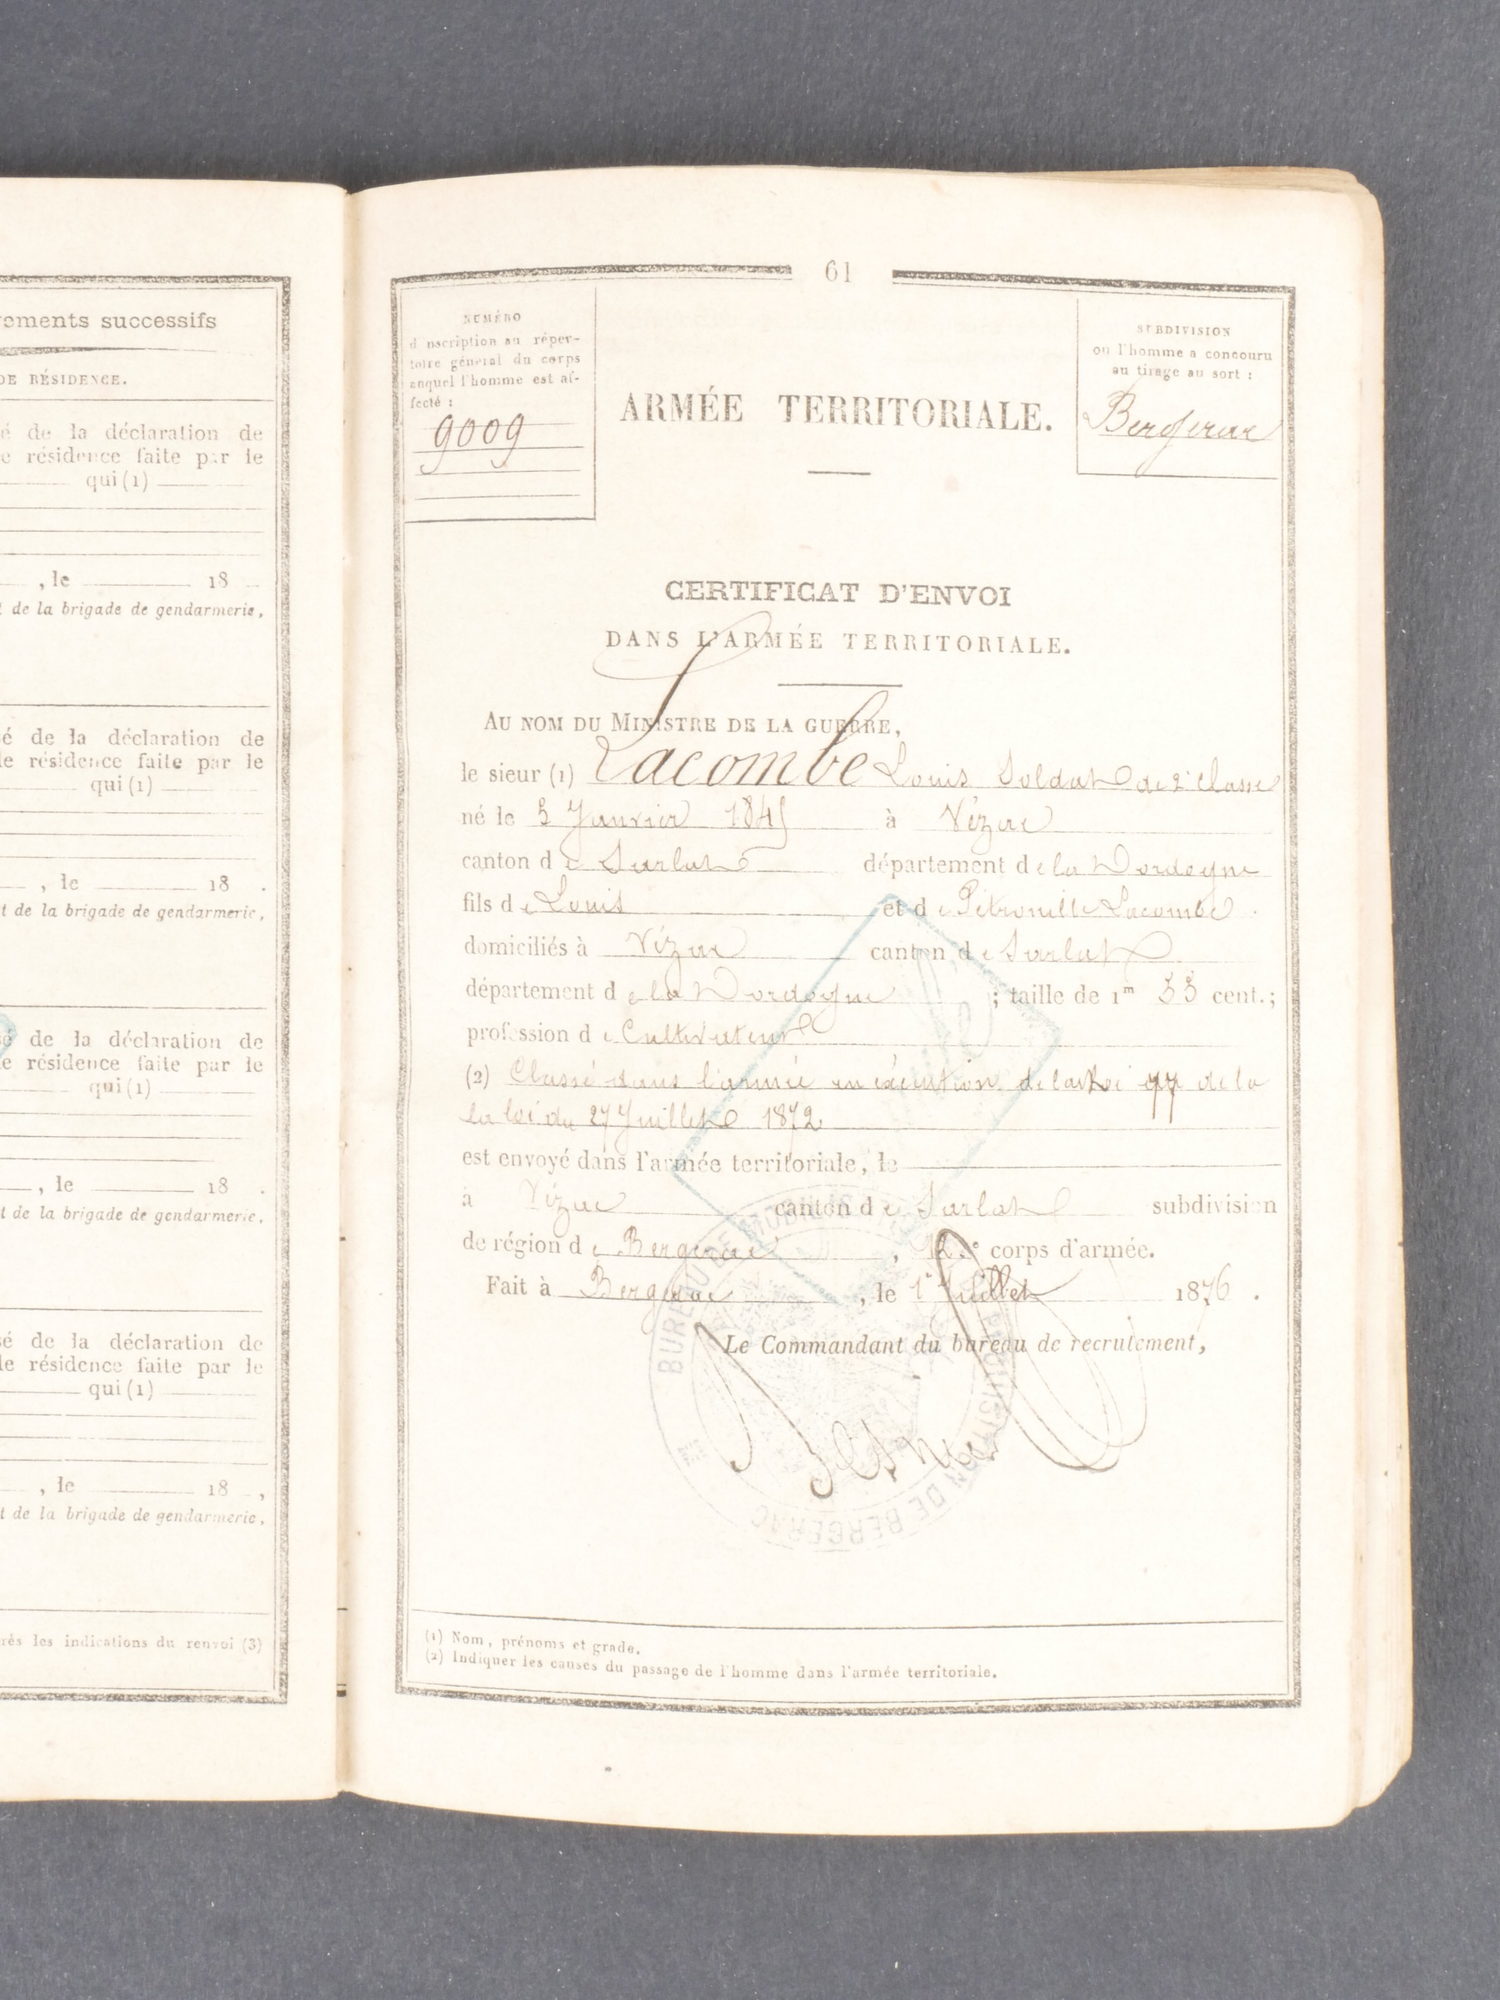 ements successifs
DE RÉSIDENCE.
é de la déclaration de
e résidence faite par le
qui (1)
, le 18
t de la brigade de gendarmerie,
sé de la déclaration de
le résidence faite par le
qui (1)
, le 18 .
t de la brigade de gendarmerie,
sé de la déclaration de
e résidence faite par le
qui (1)
, le 18 .
t de la brigade de gendarmerie,
sé de la déclaration de
le résidence faite par le
qui (1)
, le 18 ,
t de la brigade de gendarmerie,
rés les indications du renvoi (3)
61
NUMÉRO
d'inscription au réper-
toire général du corps
auquel l'homme est af-
fecté :
9009
ARMÉE TERRITORIALE.
SUBDIVISION
où l'homme a concouru
au tirage au sort :
Bergerac
CERTIFICAT D'ENVOI
DANS L'ARMÉE TERRITORIALE.
AU NOM DU MINISTRE DE LA GUERRE,
le sieur (1) Lacombe Louis Soldat de 2e Classe
né le 5 Janvier 1845 à Vézac
canton de Sarlat département de la Dordogne
fils de Louis et de Pétronille Lacombe
domiciliés à Vézac canton de Sarlat
département de la Dordogne ; taille de 1m 55 cent.;
profession de Cultivateur
(2) Classé dans l'armée en éxécution de la loi 77 de la
la loi du 27 Juillet 1872
est envoyé dans l'armée territoriale, le
à Vézac canton de Sarlat subdivision
de région de Bergerac , 12e corps d'armée.
Fait à Bergerac , le 1er Juillet 1876 .
Le Commandant du bureau de recrutement,
BUREAU DE
DE BERGERAC
(1) Nom, prénoms et grade.
(2) Indiquer les causes du passage de l'homme dans l'armée territoriale.